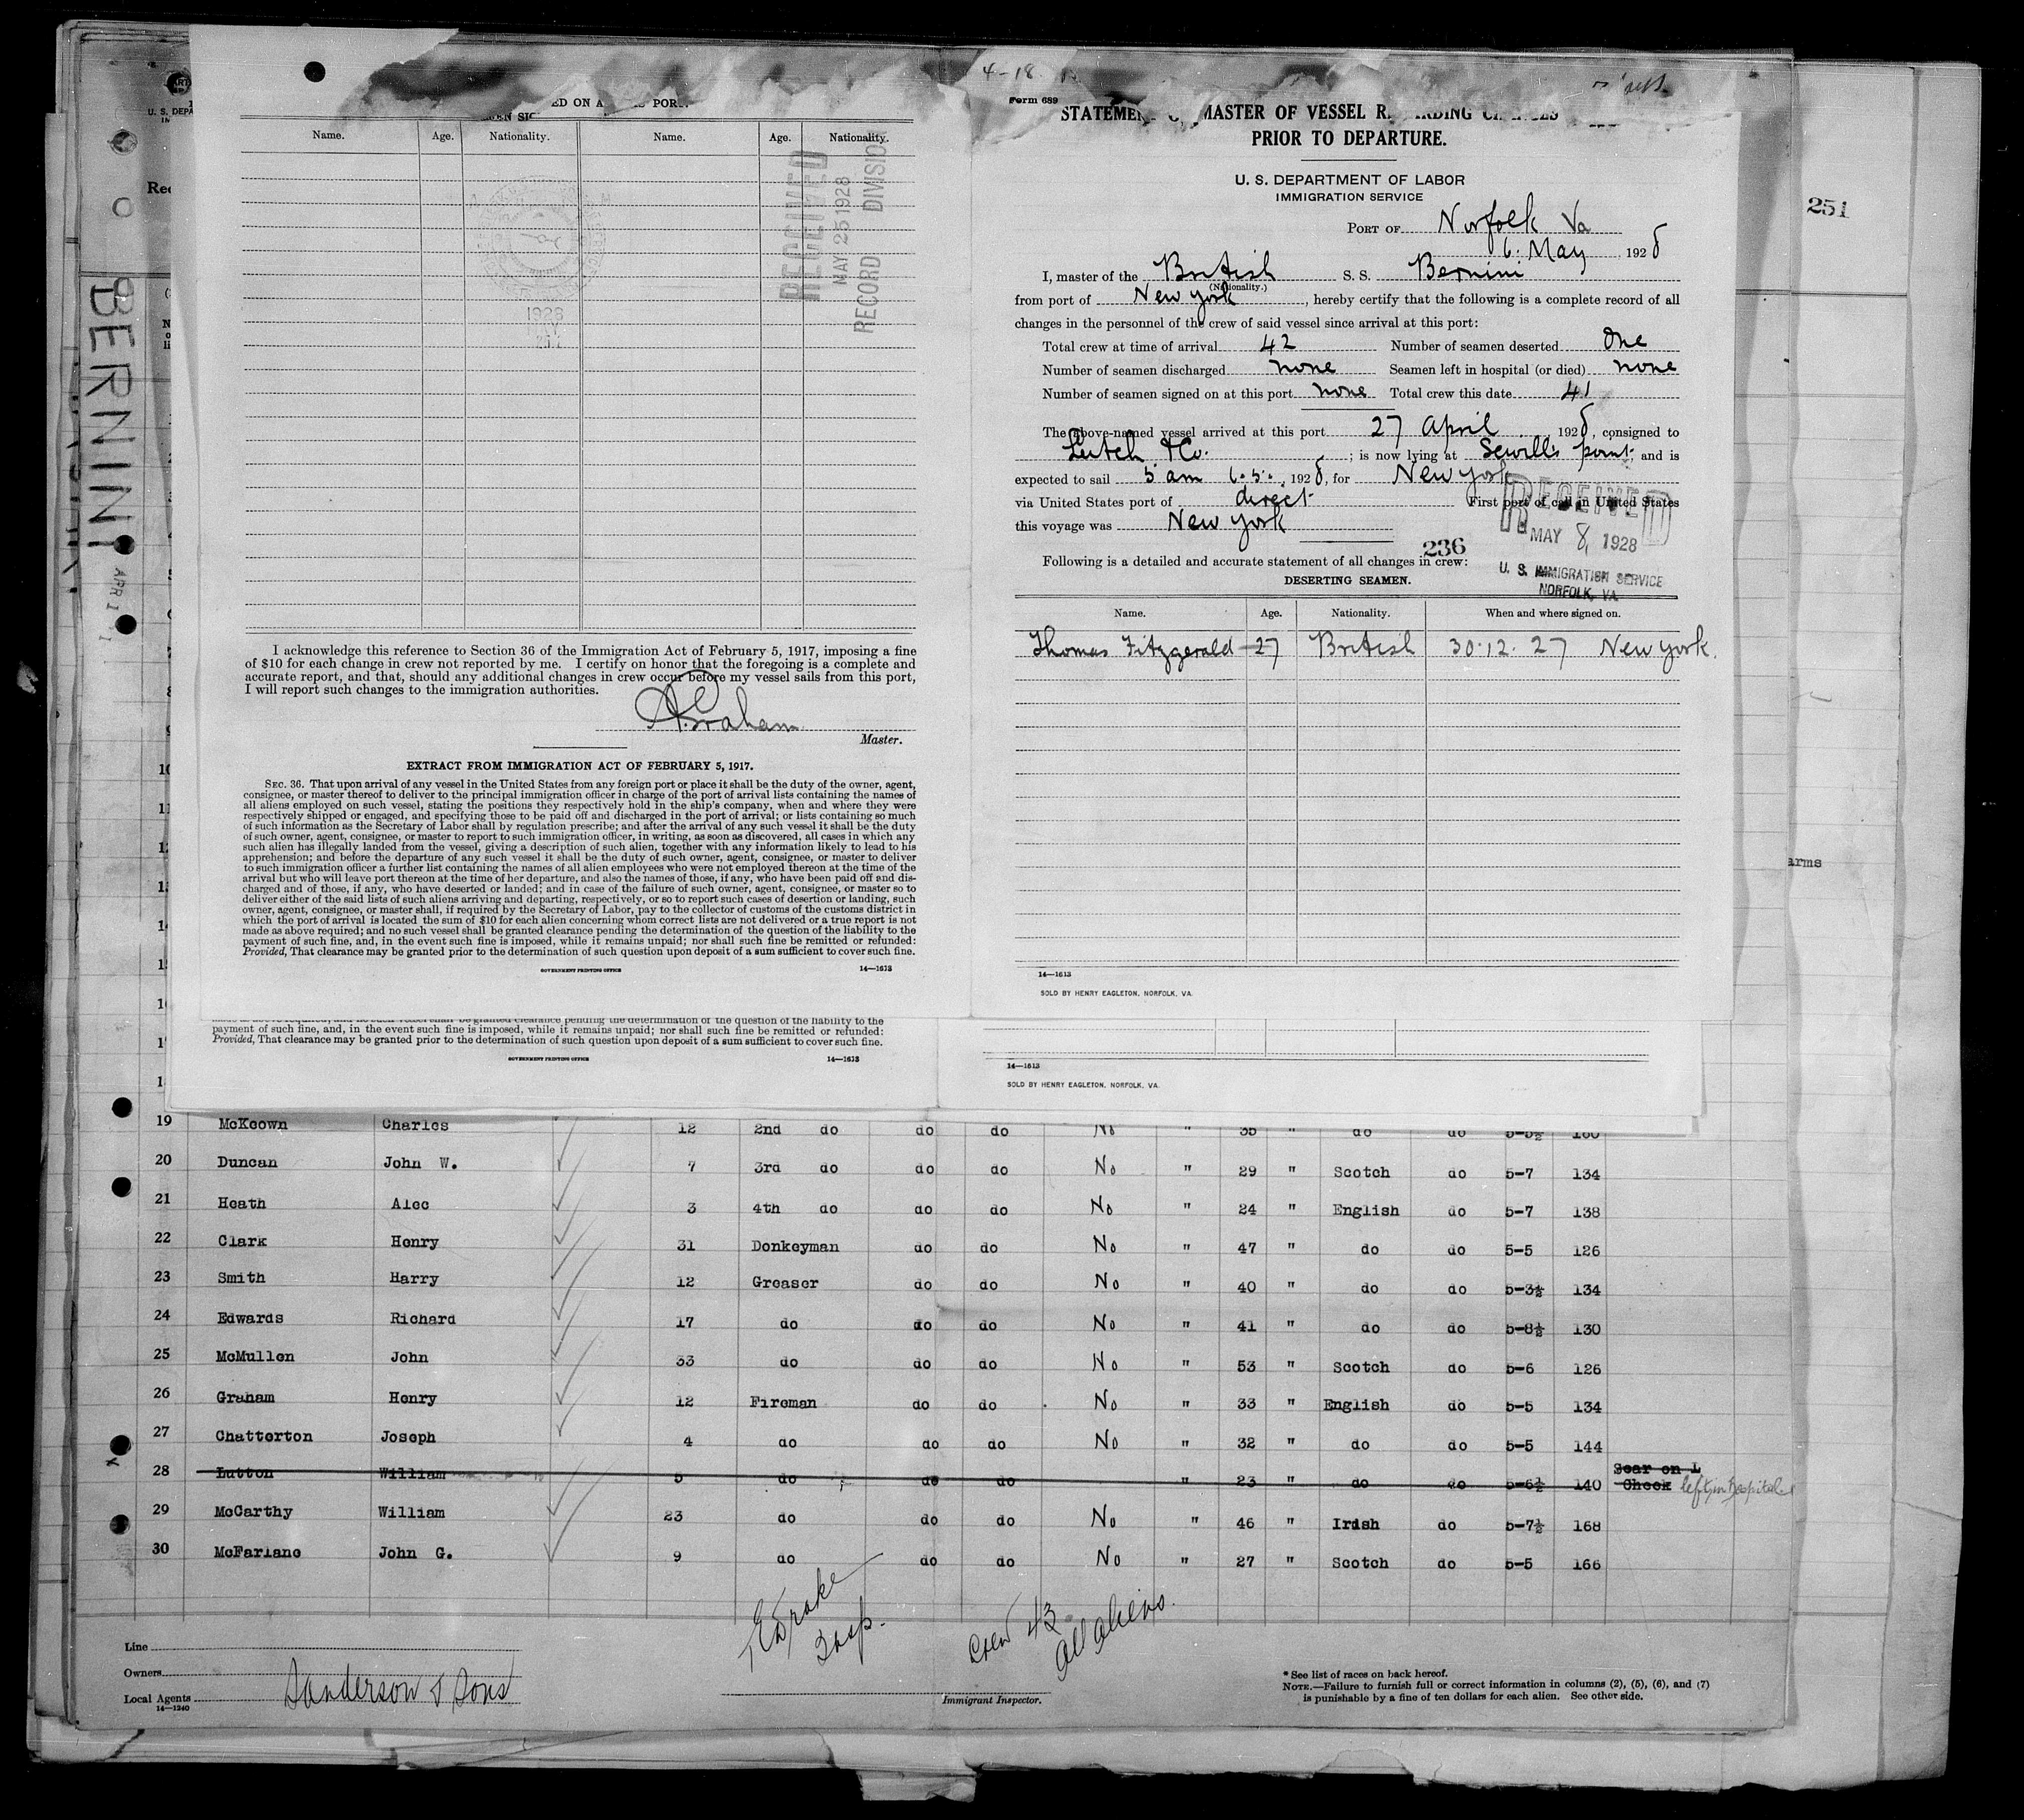 4-18
Form 689
ED ON A
PORT.
Name. Age. Nationality. Name. Age. Nationality.
RECEIVED
MAY 25 1928
RECORD DIVISION
1928
MAY
I acknowledge this reference to Section 36 of the Immigration Act of February 5, 1917, imposing a fine
of $10 for each change in crew not reported by me. I certify on honor that the foregoing is a complete and
accurate report, and that, should any additional changes in crew occur before my vessel sails from this port,
I will report such changes to the immigration authorities.
A. Graham
Master.
EXTRACT FROM IMMIGRATION ACT OF FEBRUARY 5, 1917.
SEC. 36. That upon arrival of any vessel in the United States from any foreign port or place it shall be the duty of the owner, agent,
consignee, or master thereof to deliver to the principal immigration officer in charge of the port of arrival lists containing the names of
all aliens employed on such vessel, stating the positions they respectively hold in the ship's company, when and where they were
respectively shipped or engaged, and specifying those to be paid off and discharged in the port of arrival; or lists containing so much
of such information as the Secretary of Labor shall by regulation prescribe; and after the arrival of any such vessel it shall be the duty
of such owner, agent, consignee, or master to report to such immigration officer, in writing, as soon as discovered, all cases in which any
such alien has illegally landed from the vessel, giving a description of such alien, together with any information likely to lead to his
apprehension; and before the departure of any such vessel it shall be the duty of such owner, agent, consignee, or master to deliver
to such immigration officer a further list containing the names of all alien employees who were not employed thereon at the time of the
arrival but who will leave port thereon at the time of her departure, and also the names of those, if any, who have been paid off and dis-
charged and of those, if any, who have deserted or landed; and in case of the failure of such owner, agent, consignee, or master so to
deliver either of the said lists of such aliens arriving and departing, respectively, or so to report such cases of desertion or landing, such
owner, agent, consignee, or master shall, if required by the Secretary of Labor, pay to the collector of customs of the customs district in
which the port of arrival is located the sum of $10 for each alien concerning whom correct lists are not delivered or a true report is not
made as above required; and no such vessel shall be granted clearance pending the determination of the question of the liability to the
payment of such fine, and, in the event such fine is imposed, while it remains unpaid; nor shall such fine be remitted or refunded:
Provided, That clearance may be granted prior to the determination of such question upon deposit of a sum sufficient to cover such fine.
GOVERNMENT PRINTING OFFICE 14—1613
STATEMEN MASTER OF VESSEL R ARDING
PRIOR TO DEPARTURE.
U. S. DEPARTMENT OF LABOR
IMMIGRATION SERVICE
PORT OF Norfolk Va
6. May, 1928
I, master of the British S. S. Bernini
(Nationality.)
from port of New York, hereby certify that the following is a complete record of all
changes in the personnel of the crew of said vessel since arrival at this port:
Total crew at time of arrival 42 Number of seamen deserted One
Number of seamen discharged none Seamen left in hospital (or died) none
Number of seamen signed on at this port none Total crew this date 41
The above-named vessel arrived at this port 27 April 1928, consigned to
Leitch & Co. ; is now lying at Sewills point, and is
expected to sail 5 am 6.5., 1928, for New York
via United States port of direct First port of call in United States
this voyage was New York
RECEIVED
MAY 8, 1928
U. S. IMMIGRATION SERVICE
NORFOLK, VA.
236
Following is a detailed and accurate statement of all changes in crew:
DESERTING SEAMEN.
Name. Age. Nationality. When and where signed on.
Thomas Fitzgerald 27 British 30.12.27 New York.
14—1613
SOLD BY HENRY EAGLETON, NORFOLK, VA.
payment of such fine, and, in the event such fine is imposed, while it remains unpaid; nor shall such fine be remitted or refunded:
Provided, That clearance may be granted prior to the determination of such question upon deposit of a sum sufficient to cover such fine.
GOVERNMENT PRINTING OFFICE 14—1613
14—1613
SOLD BY HENRY EAGLETON, NORFOLK, VA.
251
arms
BERNINI
U. S. DEPA
Rec
19 McKeown Charles 12 2nd do do do No " 35 " do do 5-5½ 160
20 Duncan John W. 7 3rd do do do No " 29 " Scotch do 5-7 134
21 Heath Alec 3 4th do do do No " 24 " English do 5-7 138
22 Clark Henry 31 Donkeyman do do No " 47 " do do 5-5 126
23 Smith Harry 12 Greaser do do No " 40 " do do 5-3½ 134
24 Edwards Richard 17 do do do No " 41 " do do 5-8½ 130
25 McMullen John 33 do do do No " 53 " Scotch do 5-6 126
26 Graham Henry 12 Fireman do do No " 33 " English do 5-5 134
27 Chatterton Joseph 4 do do do No " 32 " do do 5-5 144
28 Lutton William 5 do do do " 23 " do do 5-6½ 140 Scar on L Cheek left in hospital
29 McCarthy William 23 do do do No " 46 " Irish do 5-7½ 168
30 McFarlane John G. 9 do do do No " 27 " Scotch do 5-5 166
Crew 43
all aliens.
Line
Owners
Local Agents Sanderson & Sons
14—1240
Immigrant Inspector.
* See list of races on back hereof.
NOTE.—Failure to furnish full or correct information in columns (2), (5), (6), and (7)
is punishable by a fine of ten dollars for each alien. See other side.